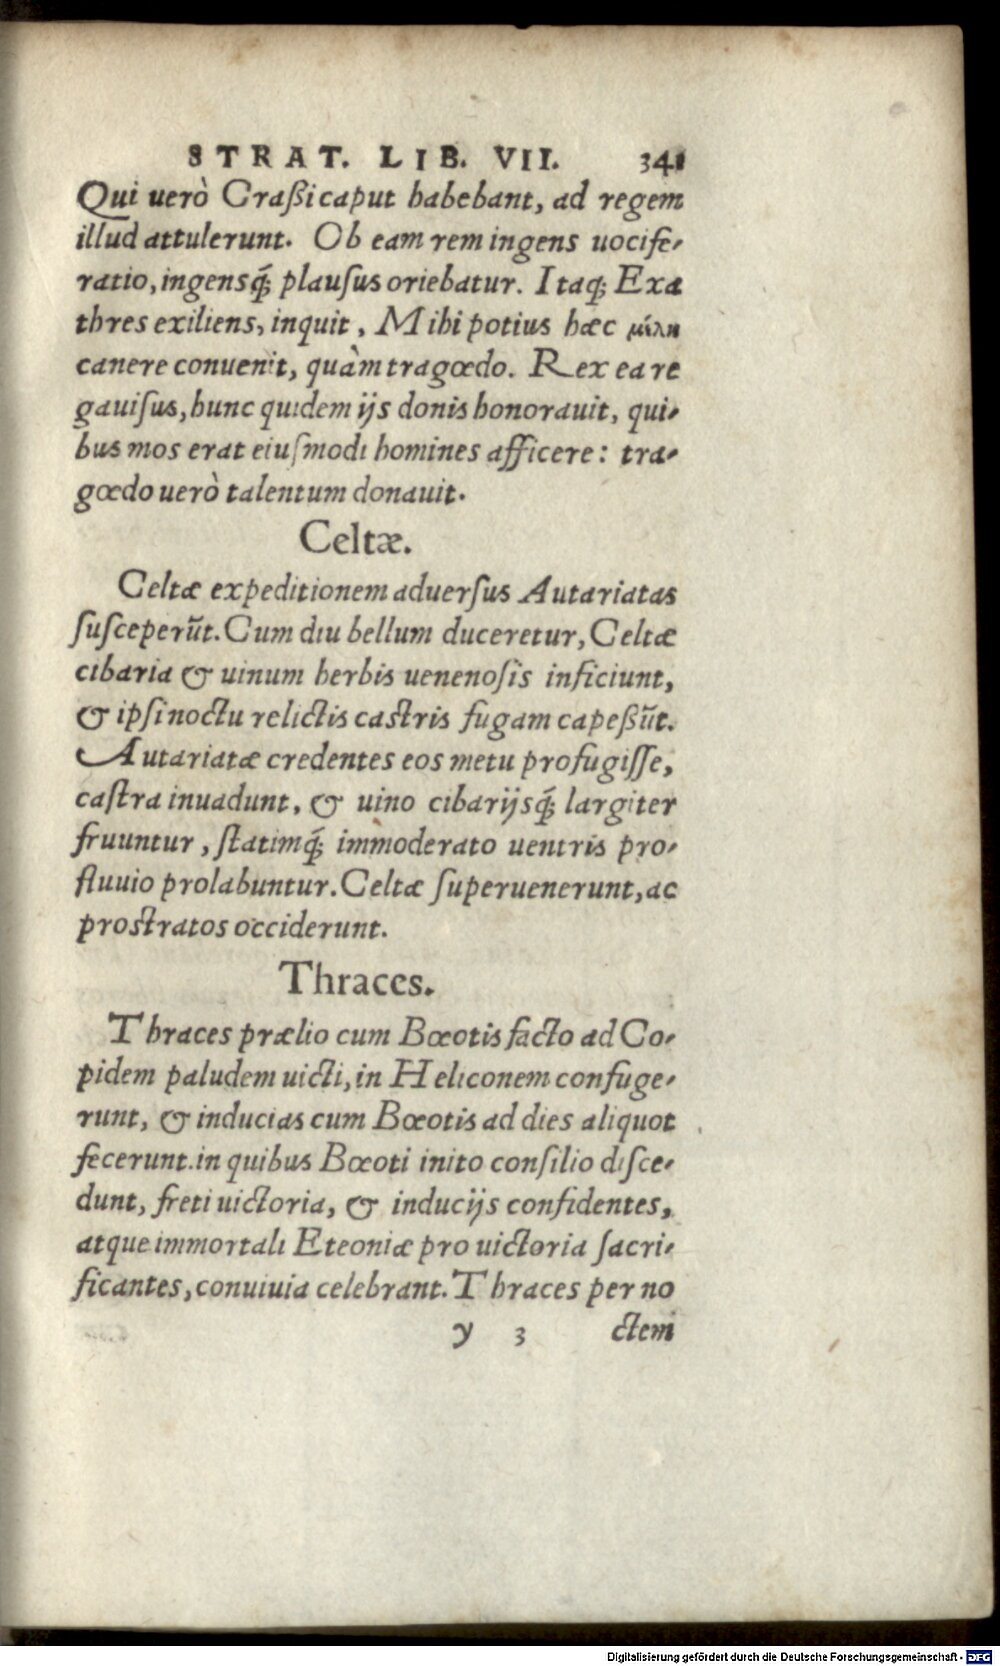 STRAT. LIB. VII. 341
Qui uerò Craßi caput habebant, ad regem
illud attulerunt. Ob eam rem ingens uocife-
ratio, ingensq́; plauſus oriebatur. Itaq; Exa
thres exiliens, inquit, Mihi potius hæc μέλη
canere convenit, quàm tragœdo. Rex ea re
gauiſus, hunc quidem ijs donis honorauit, qui-
bus mos erat eiuſmodi homines afficere: tra-
gœdo uerò talentum donauit.
Celtæ.
Celtæ expeditionem aduerſus Autariatas
ſuſceperũt. Cum diu bellum duceretur, Celtæ
cibaria & uinum herbis uenenoſis inficiunt,
& ipſi noctu relictis caſtris fugam capeßũt.
Autariatæ credentes eos metu profugiſſe,
caſtra inuadunt, & uino cibarijsq́; largiter
fruuntur, ſtatimq́; immoderato uentris pro-
fluuio prolabuntur. Celtæ ſuperuenerunt, ac
proſtratos occiderunt.
Thraces.
Thraces prælio cum Bœotis facto ad Co-
pidem paludem uicti, in Heliconem confuge-
runt, & inducias cum Bœotis ad dies aliquot
fecerunt. in quibus Bœoti inito conſilio diſce-
dunt, freti uictoria, & inducijs confidentes,
atque immortali Eteoniæ pro uictoria ſacri-
ficantes, conuiuia celebrant. Thraces per no
y 3 ctem
Digitalisierung gefördert durch die Deutsche Forschungsgemeinschaft - DFG